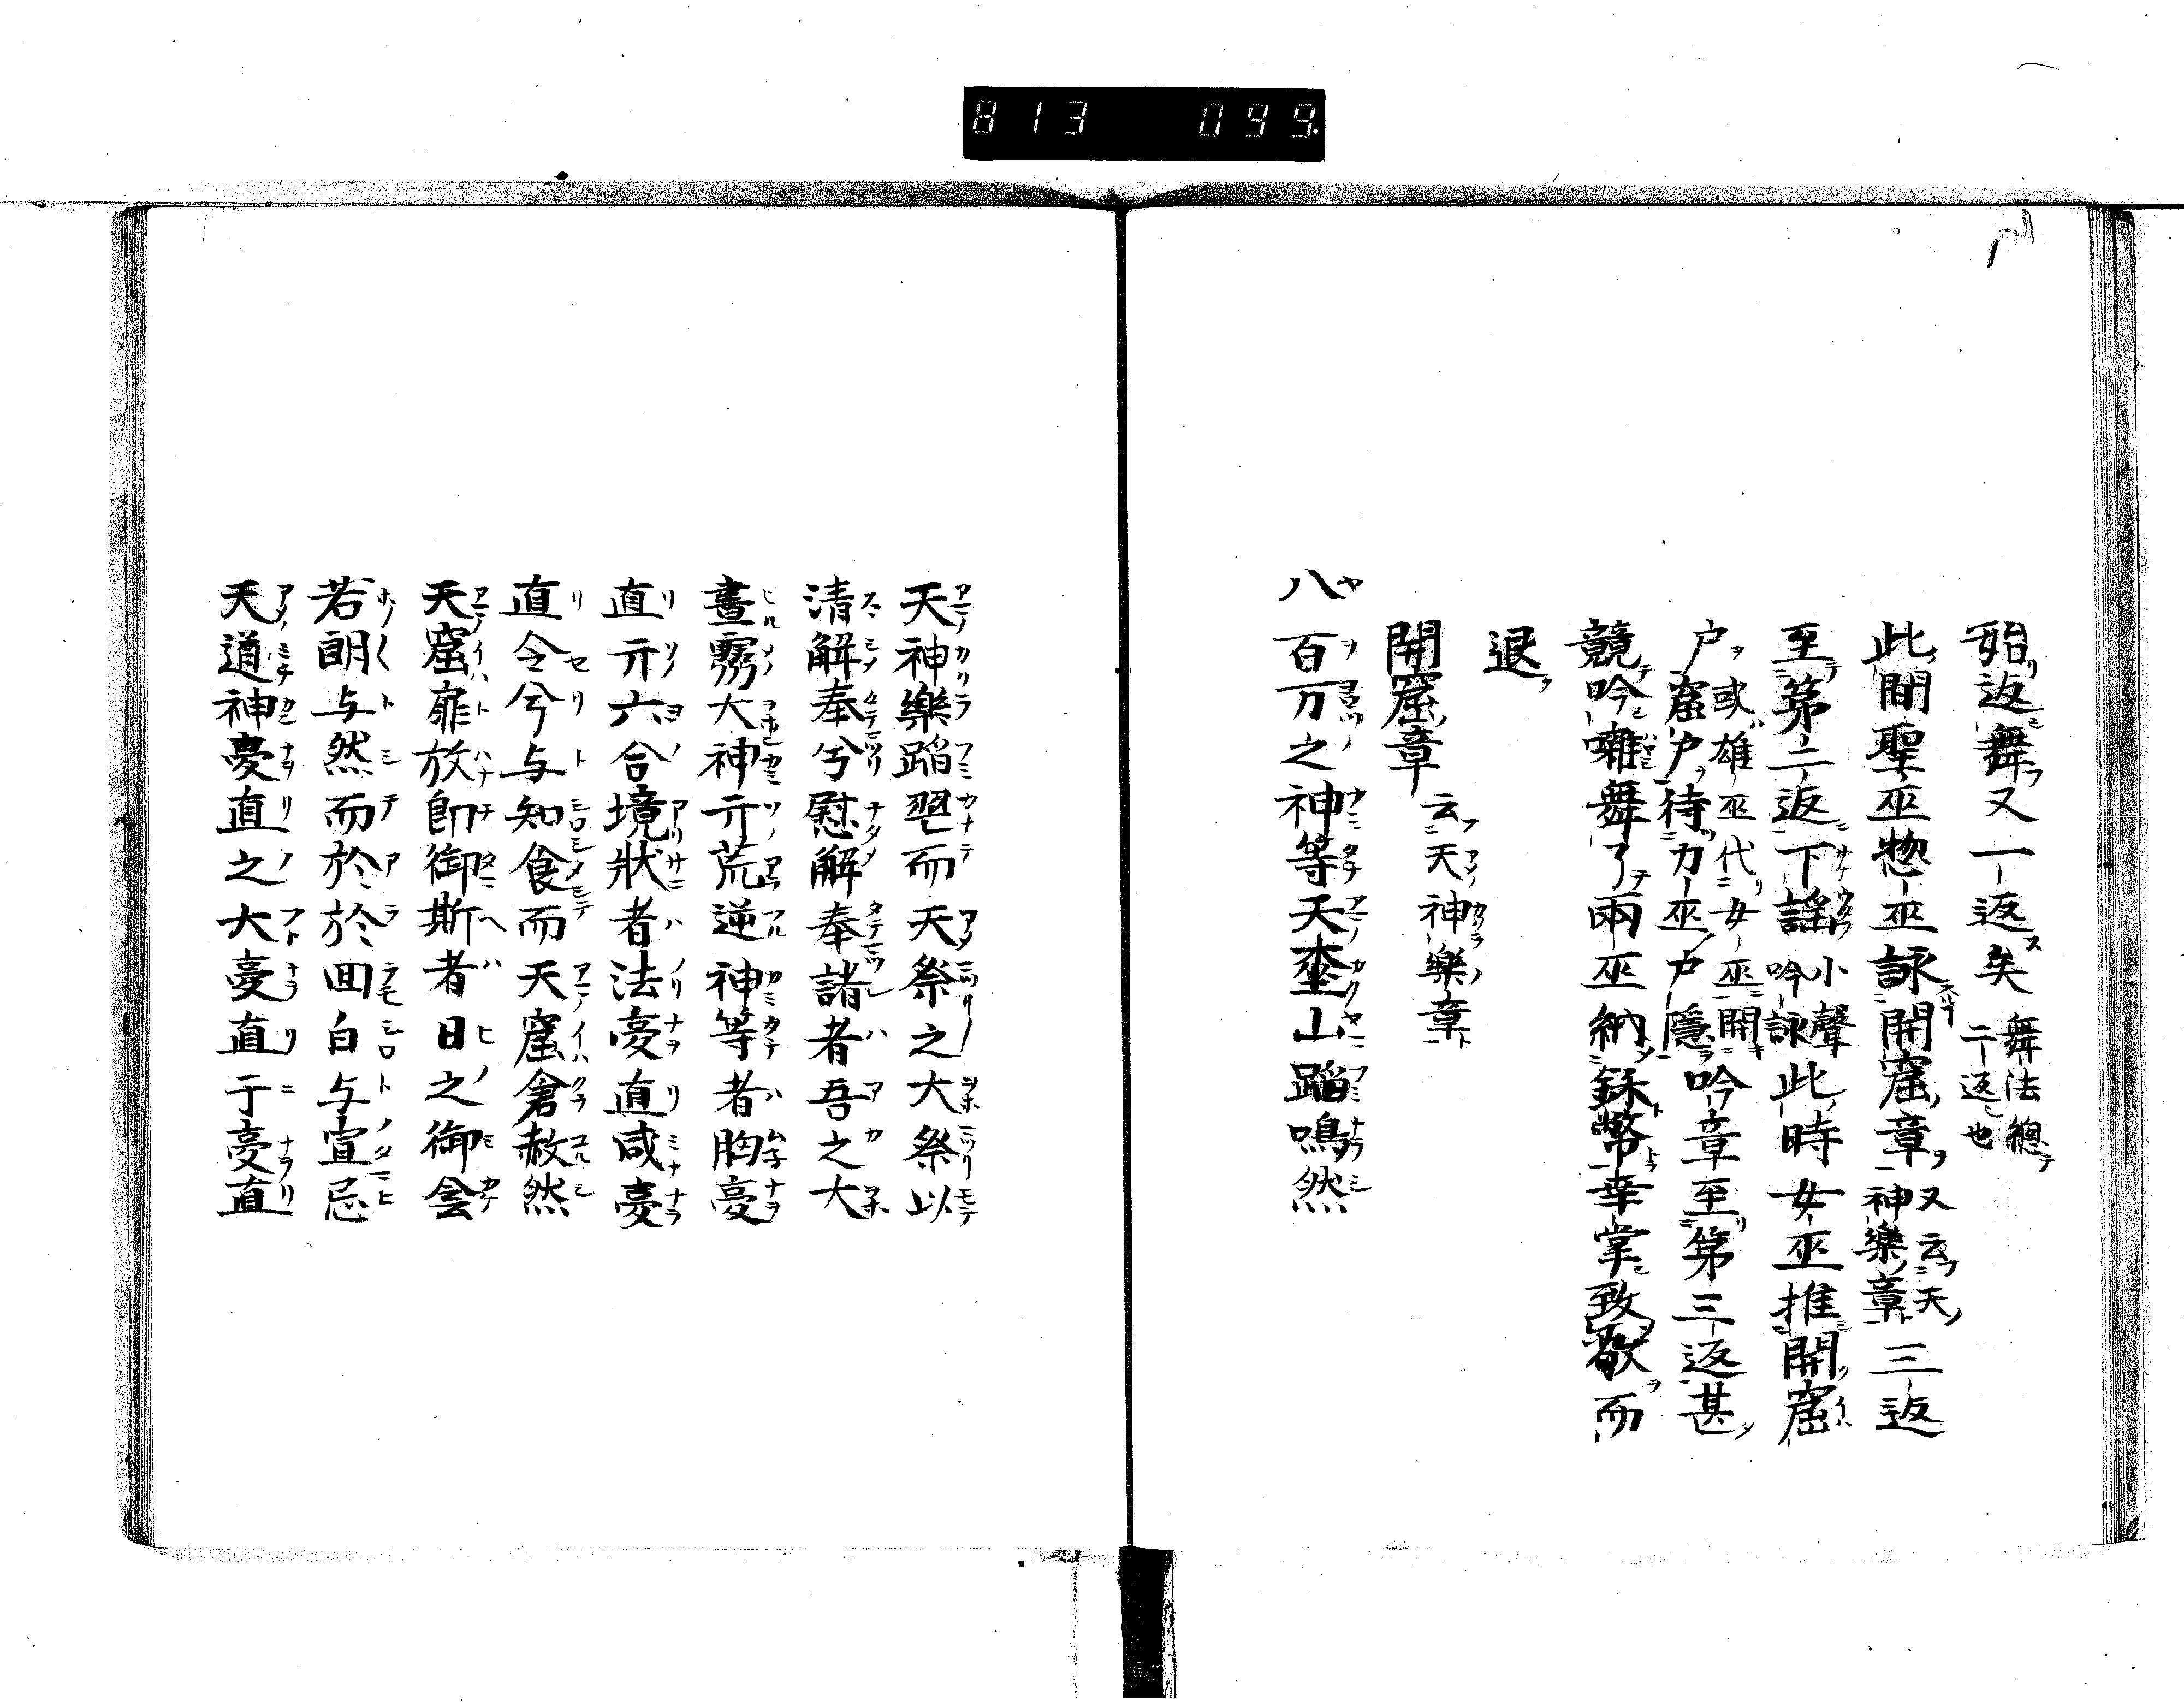 813 099.
始返舞又一返矣 舞法總二返也
此間聖巫惣巫詠開窟章 又云天神樂章 三返
至第二返下謡 小聲吟詠 此時女巫推開窟
戸 或雄巫代女巫開窟戸待力巫戸隱 吟章至第三返甚
競吟囃舞了兩巫納銾幣幸掌致敬而
退
開窟章 云天神樂章
八百万之神等天埊山蹈鳴然
天神樂蹈翆而天祭之大祭以
清解奉兮慰解奉諸者吾之大
晝霧大神亓荒逆神等者胸㐮
直亓六合境狀者法㐮直咸㐮
直令兮与知食而天窟倉赦然
天窟扉放即御斯者日之御会
若朗与然而於於囬白与宣忌
天道神㐮直之大㐮直于㐮直